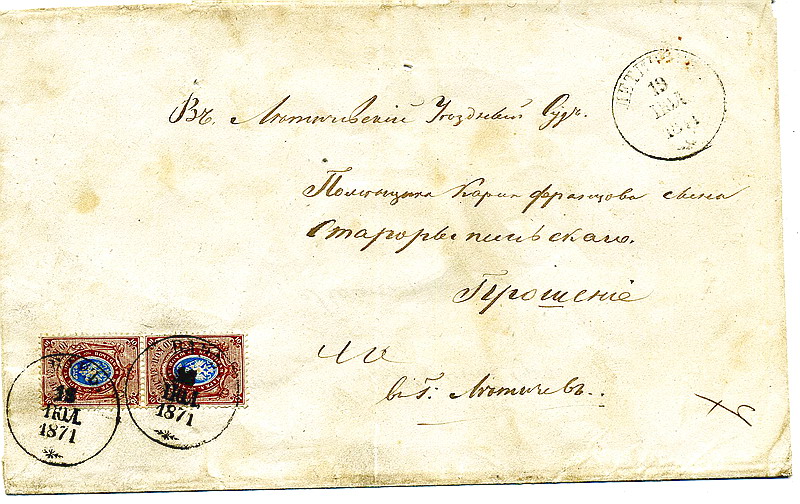 Въ. Летичевскій Уѣздный Судъ.
Помѣщика Карла Францова сына
Старорыпинскаго.
Прошеніе
въ Г: Летичевъ.
13
ІЮЛ
1871
12
ІЮЛ
1871
ІЮЛ
1871